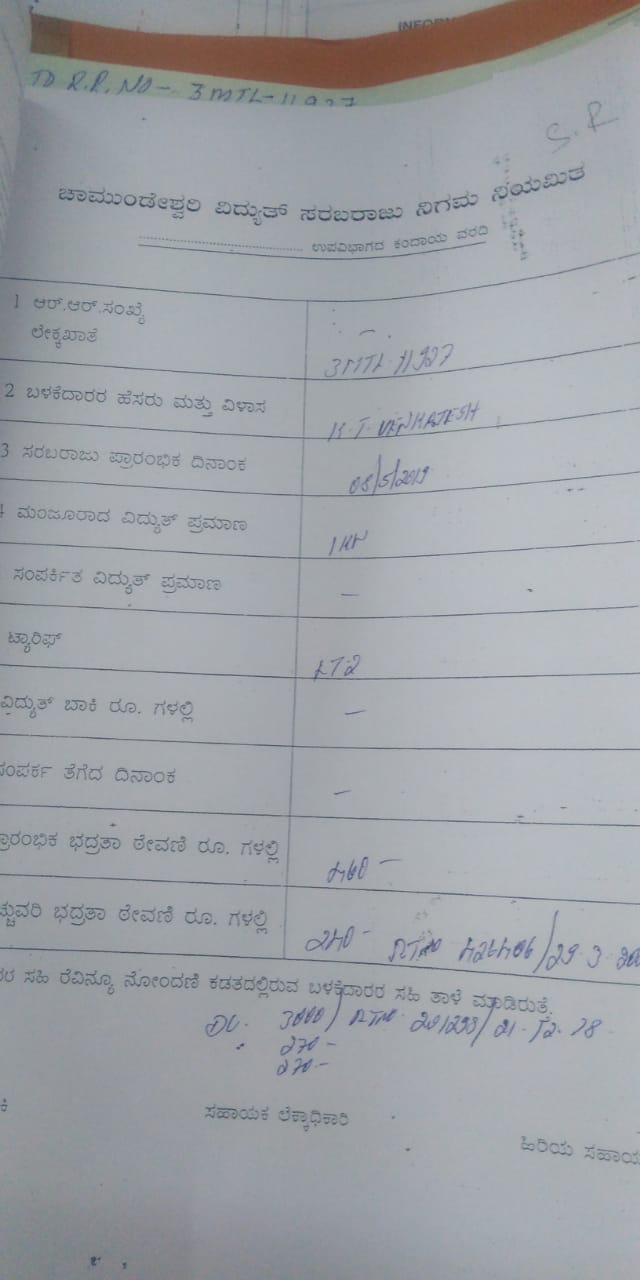 TD R.R. NO - 3MTL-11927
S.R
ಚಾಮುಂಡೇಶ್ವರಿ ವಿದ್ಯುತ್ ಸರಬರಾಜು ನಿಗಮ ನಿಯಮಿತ
ಉಪವಿಭಾಗದ ಕಂದಾಯ ವರದಿ
1 ಆರ್.ಆರ್.ಸಂಖ್ಯೆ -
ಲೇಕ್ಕಖಾತೆ 3MTL-11927
2 ಬಳಕೆದಾರರ ಹೆಸರು ಮತ್ತು ವಿಳಾಸ K.T VENKATESH
3 ಸರಬರಾಜು ಪ್ರಾರಂಭಿಕ ದಿನಾಂಕ 08/5/2019
ಮಂಜೂರಾದ ವಿದ್ಯುತ್ ಪ್ರಮಾಣ 1KW
ಸಂಪರ್ಕಿತ ವಿದ್ಯುತ್ ಪ್ರಮಾಣ -
ಟ್ಯಾರಿಫ್ LT2
ವಿದ್ಯುತ್ ಬಾಕಿ ರೂ. ಗಳಲ್ಲಿ -
ಸಂಪರ್ಕ ತೆಗೆದ ದಿನಾಂಕ -
ಭದ್ರತಾ ಠೇವಣಿ ರೂ. ಗಳಲ್ಲಿ
ಭದ್ರತಾ ಠೇವಣಿ ರೂ. ಗಳಲ್ಲಿ 240-
ಸಹಿ ರೆವಿನ್ಯೂ ನೋಂದಣಿ ಕಡತದಲ್ಲಿರುವ ಬಳಕೆದಾರರ ಸಹಿ ತಾಳೆ ಮಾಡಿರುತ್ತೆ
3000/
270-
270-
ಸಹಾಯಕ ಲೆಕ್ಕಾಧಿಕಾರಿ
ಹಿರಿಯ